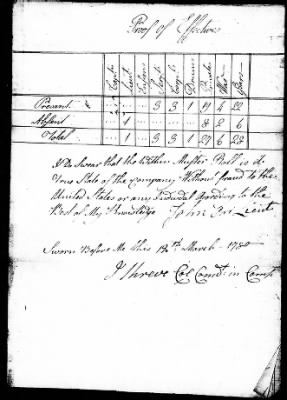 Proof of Effectives
Capts Lieut Ensigns Serjts Corpls Drums
Present 3 3 1
Absent 1 6
Total 1 3 3 1 6 28
I Do Swear that the Within Muster Roll is a
True State of the Company Without fraud to the
United States or any Individal According to the
Best of My Knowledge John Lieut
Sworn Before Me this March 1780
I Shreve Col Comdt in Camp